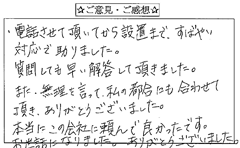 ☆ご意見・ご感想☆
・電話させて頂いてから設置まで、すばやい
対応で助りました。
質問しても早い解答して頂きました。
また、無理を言って、私の都合にも合わせて
頂き、ありがとうございました。
本当にこの会社に頼んで良かったです。
お世話になりました。ありがとうございました。